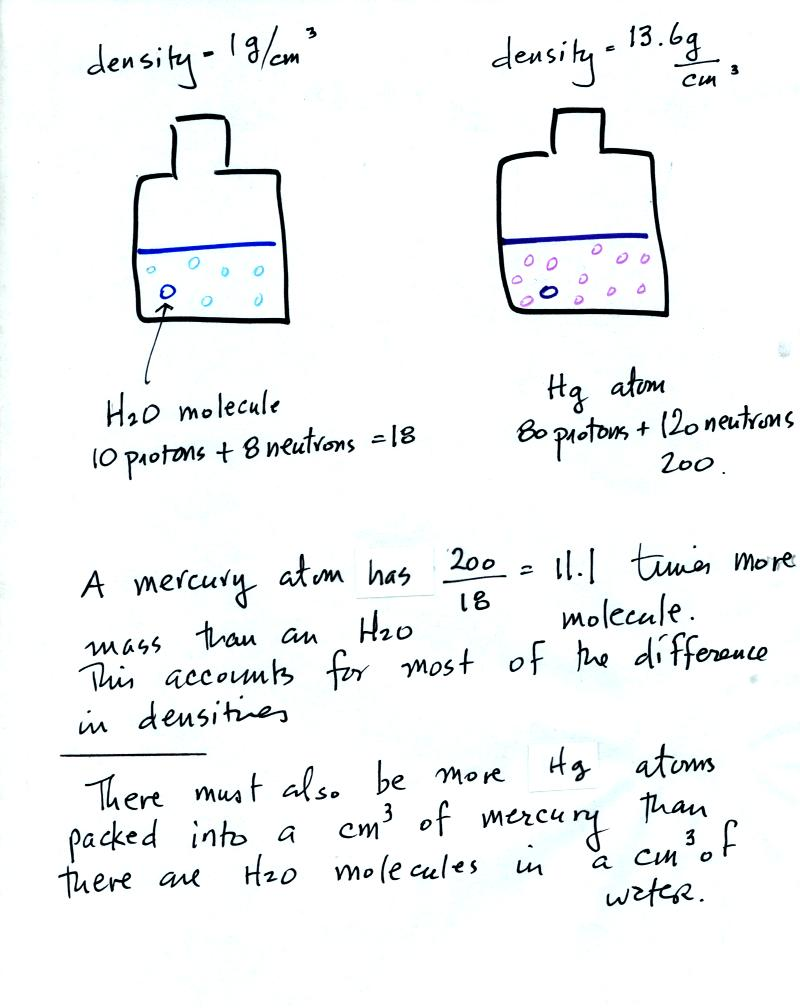 density = 1 g/cm³
density = 13.6g/cm³
H2O molecule
10 protons + 8 neutrons = 18
Hg atom
80 protons + 120 neutrons
200.
A mercury atom has 200/18 = 11.1 times more
mass than an H2O molecule.
This accounts for most of the difference
in densities
There must also be more Hg atoms
packed into a cm³ of mercury than
there are H2O molecules in a cm³ of
water.